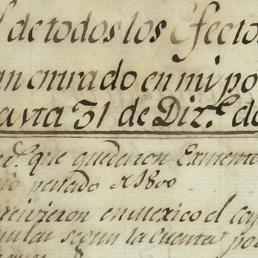 de todos los Efecto
an entrado en mi po
asta 31 de Diz.e de
que quedaron Existente
pasado de 1800
recivieron en Mexico el Ca
segun la Cuenta po